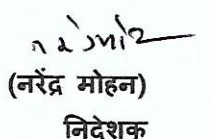 (नरेंद्र मोहन)
निदेशक